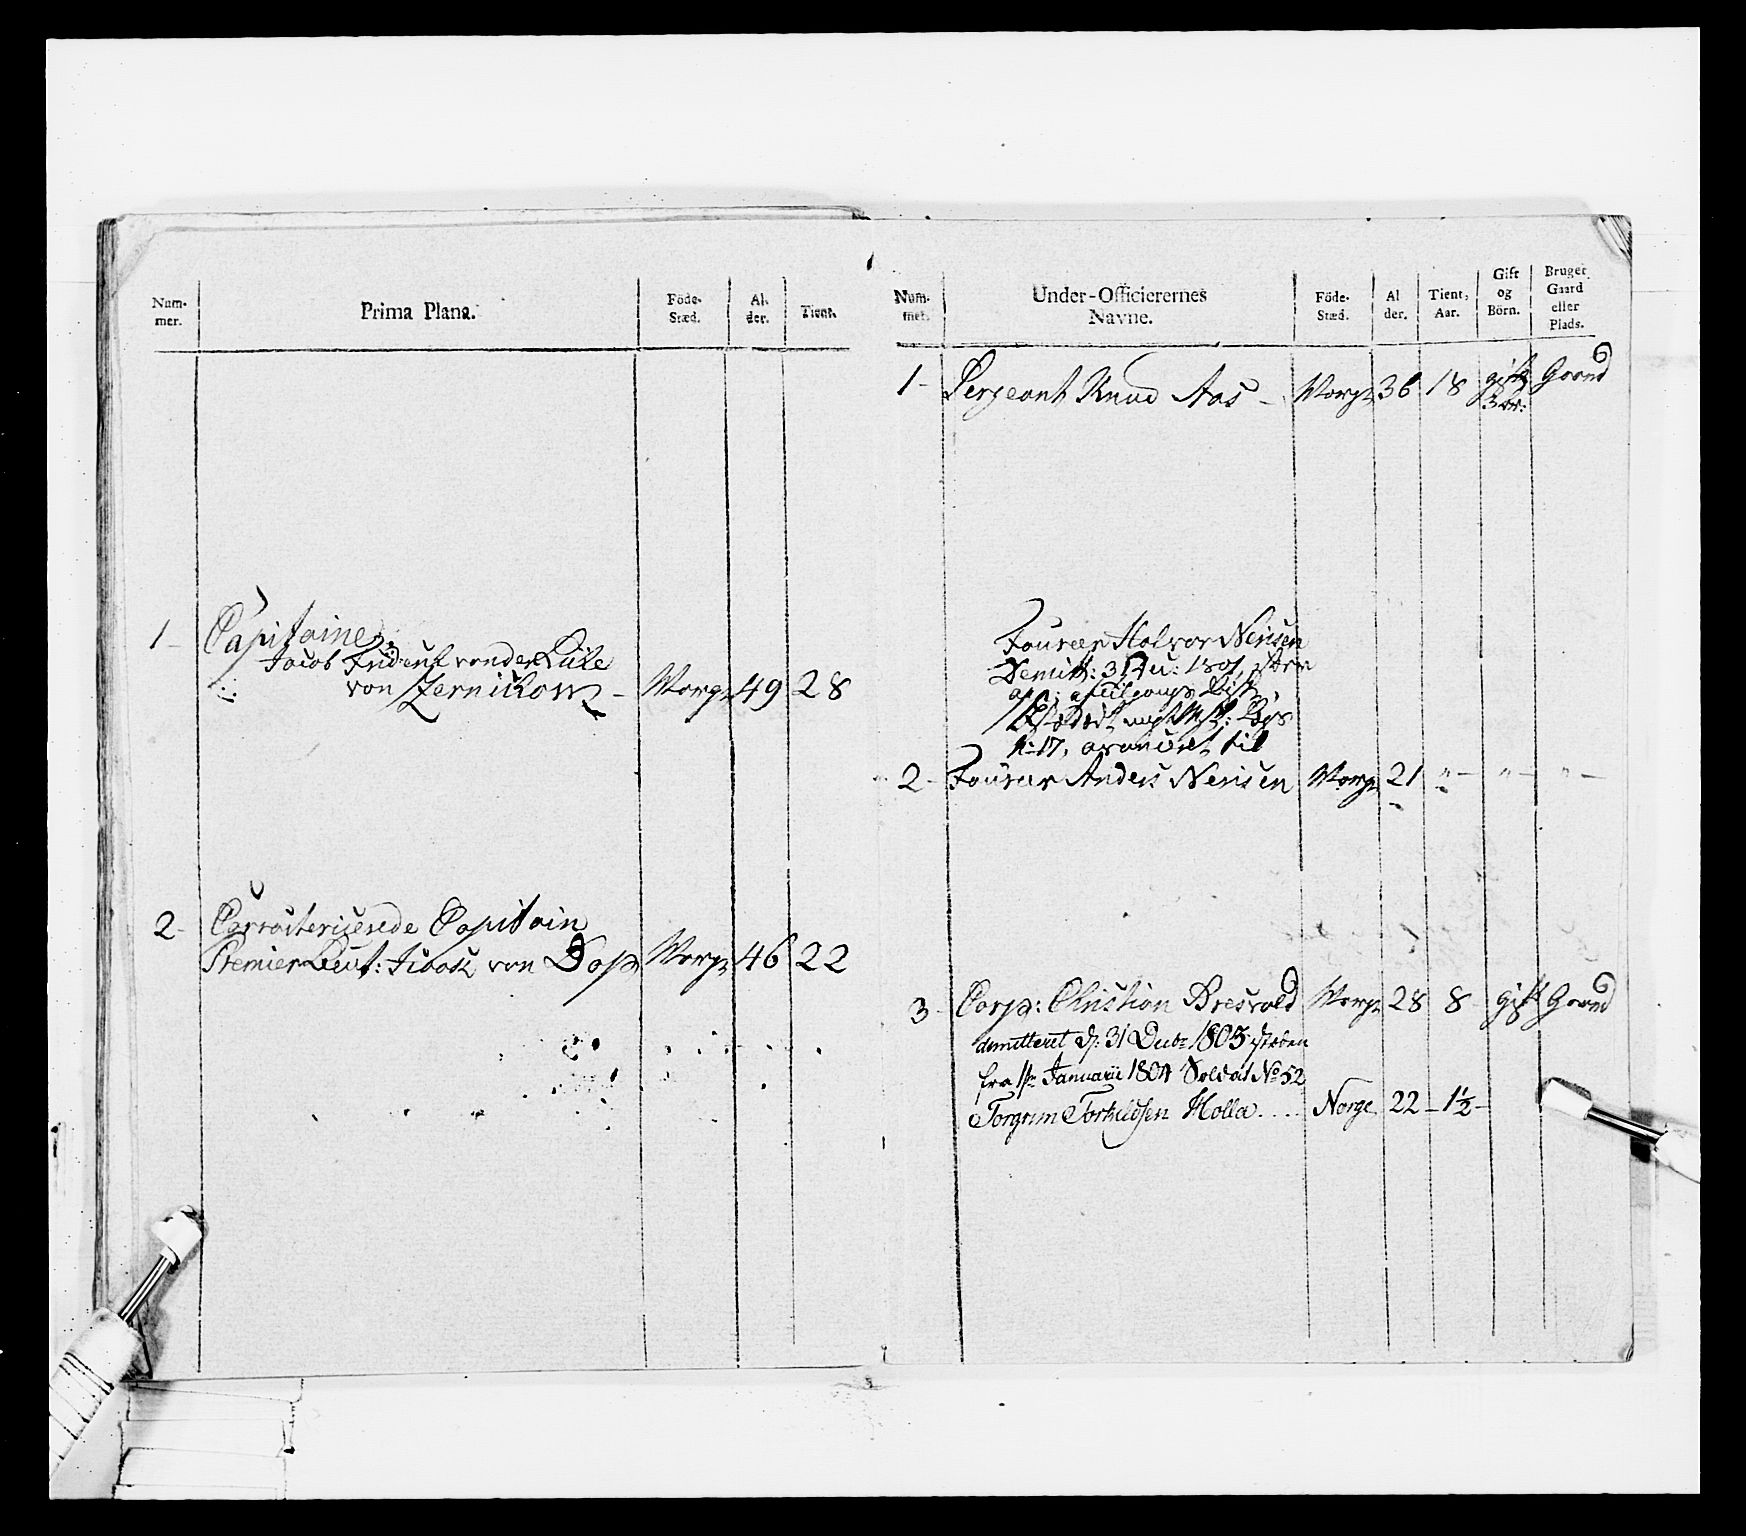 Num-
mer.
Prima Plana.
Föde-
Stæd.
Al-
der.
Tient.
1 -
Capitaine
Jacob Friderich von der Lüke
von Zernikow - Norge 49 28
2 -
Carracteriserede Capitain
Premier Lieut: von Norge 46 22
Num-
mer.
Under-Officierernes
Navne.
Föde-
Stæd.
Al
der.
Tient,
Aar.
Gift
og
Börn.
Bruger
Gaard
eller
Plads.
1 - Sergeant Knud Aas - Norge 36 18 gift Gaard
3 Br:
Foureer Halvor Nerisen
Demitt: 31
No 17, avanceret til
2 - Foureer Anders Nerisen Norge 21 " - " - " -
3 - Corp: Christian Bresvold Norge 28 8 gift Gaard
demitteret d: 31 Decbr 1803
fra 1ste Januarii 1804 Soldat No 52
Torgrim Torkildsen Holla .... Norge 22 - 1½ -